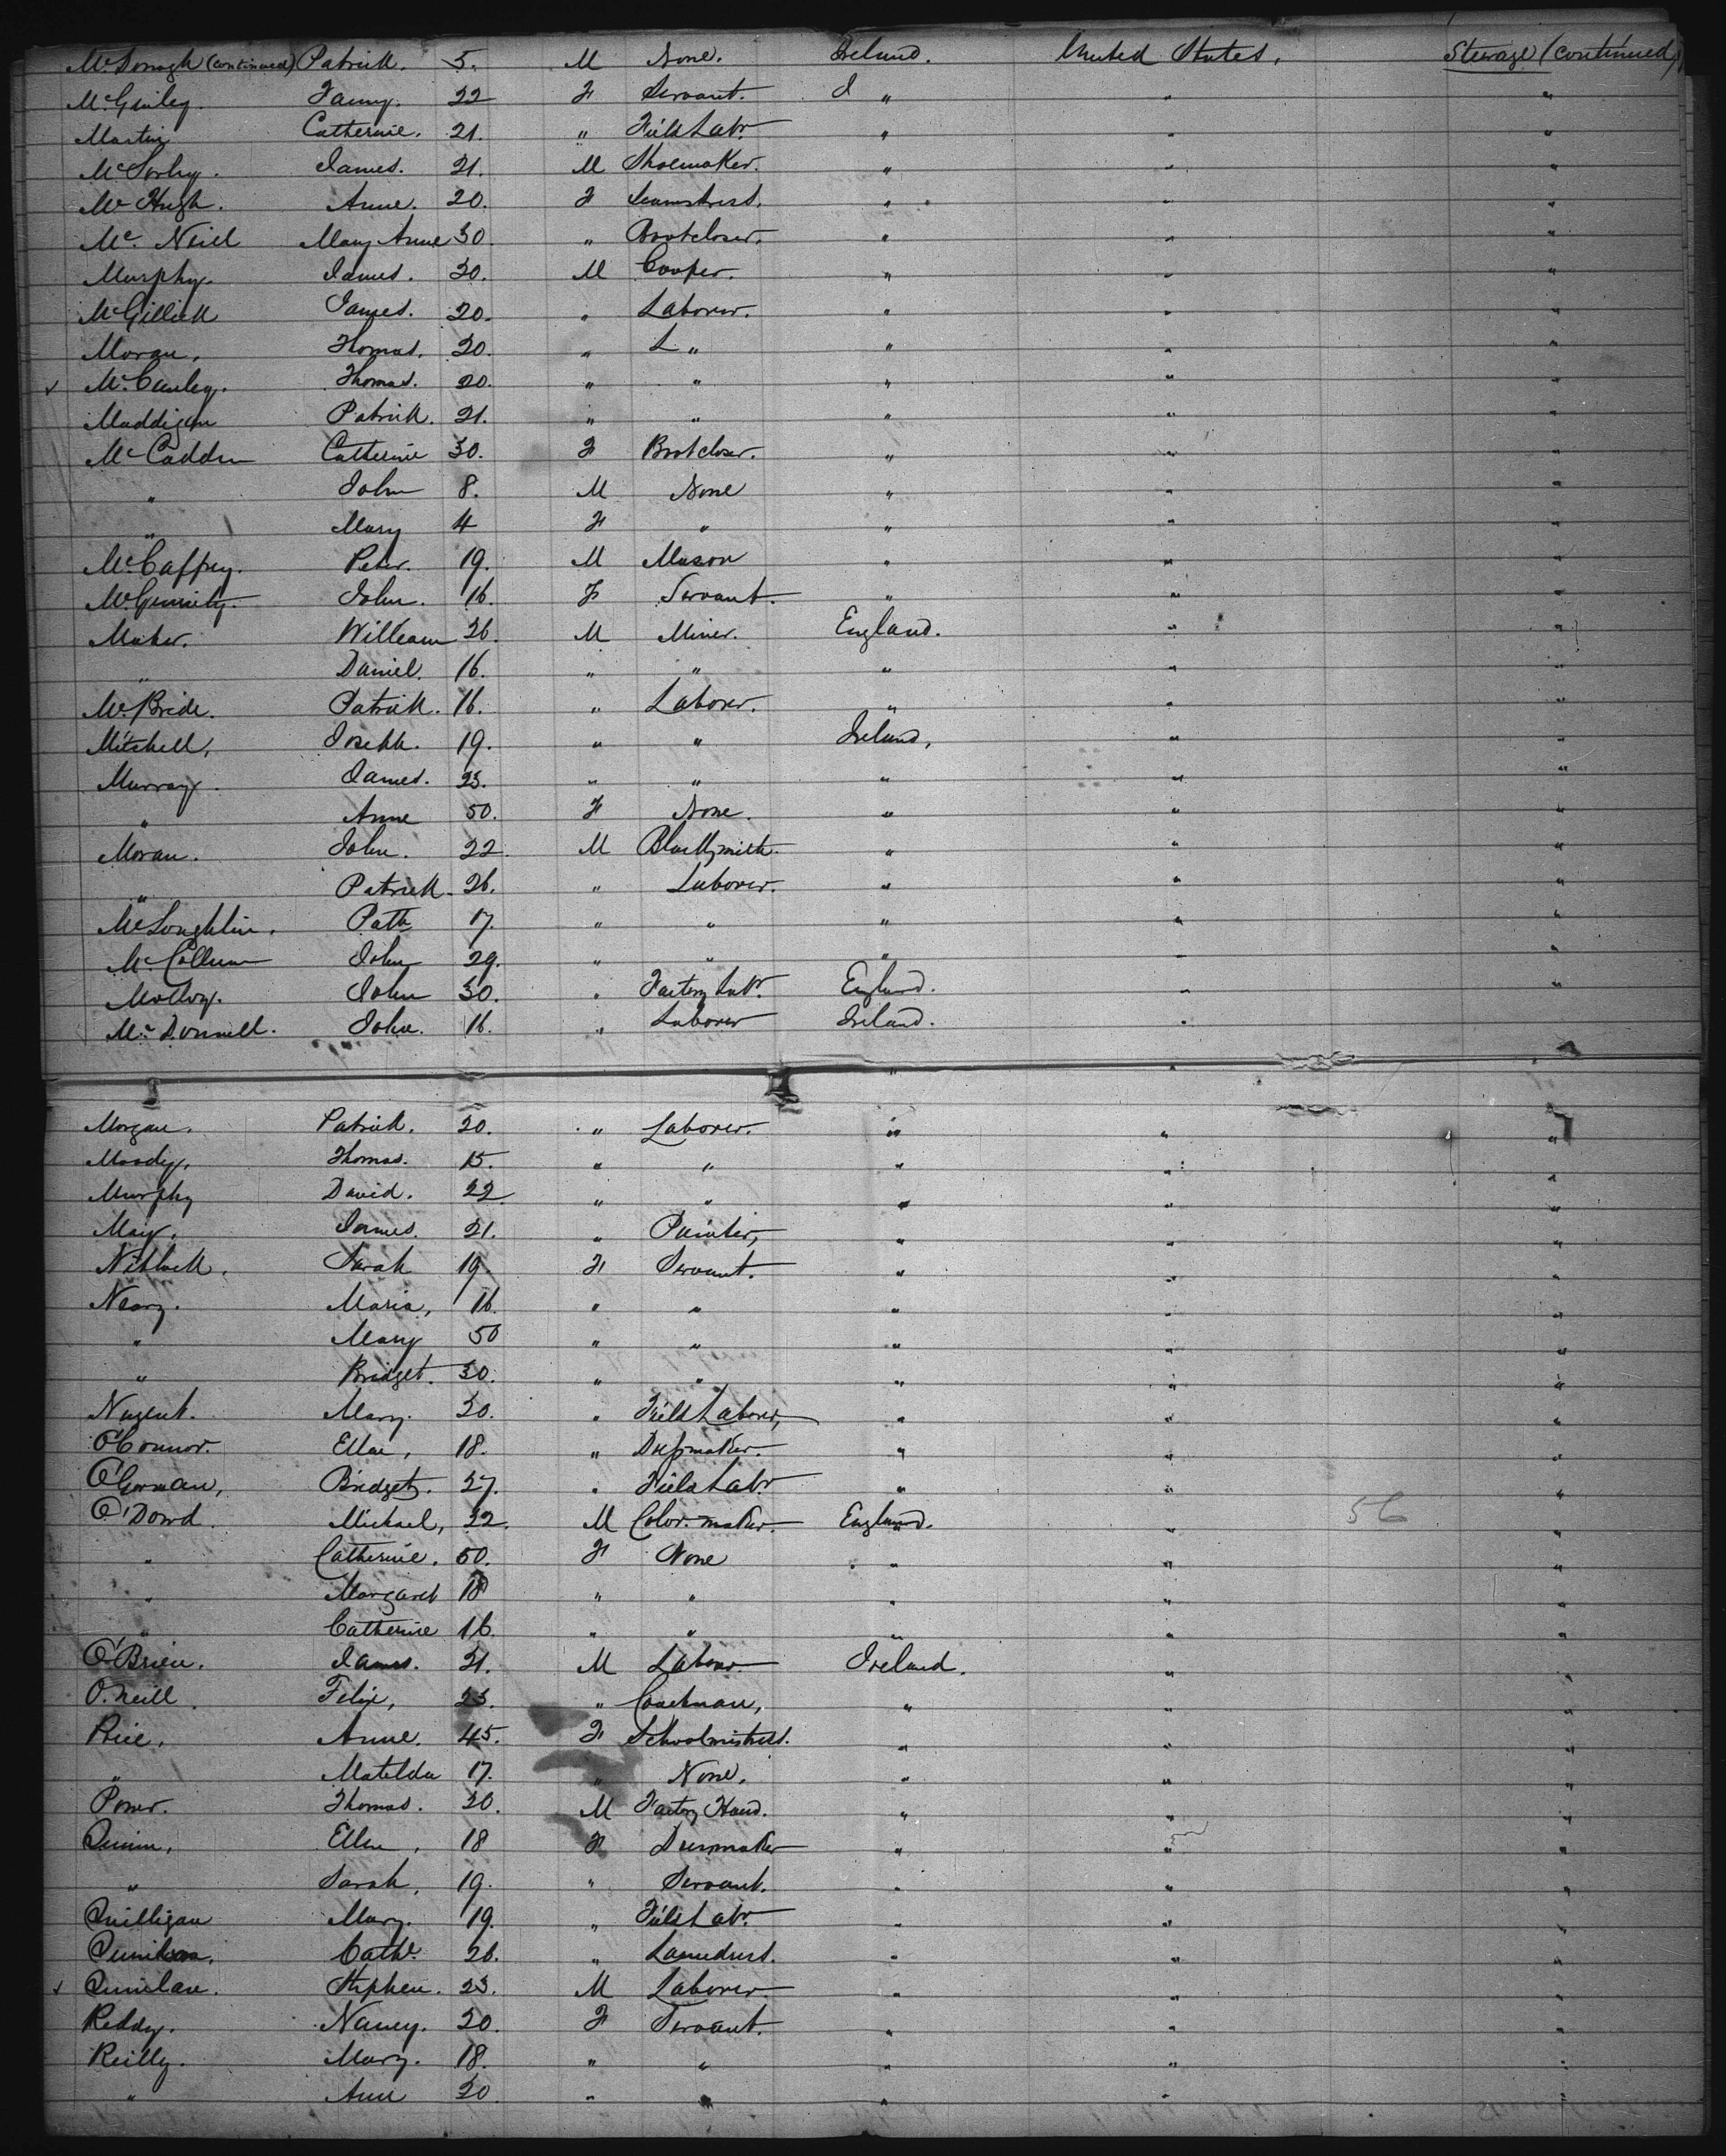 McDonagh (continued) Patrick. 5. M None. Ireland. United States. Steerage (continued)
McGinley. Fanny. 22 F Servant. I " " "
Martin Catherine. 21. " Field Labr. " " "
McSorley. James. 21. M Shoemaker. " " "
McHugh. Anne. 20. F Seamstress. " " "
Mc. Neill Mary Anne 30. " Bootcloser. " " "
Murphy. James. 20. M Cooper. " " "
McGillick James. 20. " Laborer. " " "
Moran. Thomas. 20. " L " " " "
x McCauley. Thomas. 20. " " " " "
Maddigan Patrick. 21. " " " " "
McCadden Catherine 30. F Bootcloser. " " "
" John 8. M None " " "
" Mary 4 F " " " "
McCaffrey. Peter. 19. M Mason " " "
John. 16. F Servant. " " "
Maher. William 26. M Miner. England. " "
" Daniel. 16. " " " " "
McBride. Patrick. 16. " Laborer. " " "
Mitchell, Joseph. 19. " " Ireland. " "
Murray. James. 23. " " " " "
" Anne 50. F None. " " "
Moran. John. 22. M Blacksmith. " " "
" Patrick. 26. " Laborer. " " "
McLoughlin. Patk 17. " " " " "
McCollum John 29. " " " " "
Molloy. John 30. " Factory Labr. England. " "
McDonnell. John. 16. " Laborer Ireland. " "
Morgan. Patrick. 20. " Laborer. " " "
Moody. Thomas. 15. " " " " "
Murphy David. 22. " " " " "
May. James. 21. " Painter, " " "
Niblock. Sarah 19. F Servant. " " "
Neary. Maria, 16. " " " " "
" Mary 50 " " " " "
" Bridget. 30. " " " " "
Nugent. Mary. 20. " Field Laborer, " " "
O'Connor. Ellen, 18. " Dressmaker. " " "
O'Gorman, Bridget. 27. " Field Labr " " "
O'Dowd. Michael, 22. M Color-maker. England. " 56 "
" Catherine. 50. F None " " "
" Margaret 18 " " " " "
" Catherine 16. " " " " "
O'Brien. James. 21. M Laborer Ireland. " "
O'Neill. Felix, 23. " Coachman, " " "
Rice, Anne. 45. F Schoolmistress. " " "
" Matilda 17. " None. " " "
Power. Thomas. 20. M Factory Hand. " " "
Quinn, Ellen, 18 F Dressmaker " " "
" Sarah, 19. " Servant. " " "
Quilligan Mary. 19. " Field Labr. " " "
Cathe. 26. " Laundress. " " "
x Quinlan. Stephen. 23. M Laborer. " " "
Reddy. Nancy. 20. F Servant. " " "
Reilly. Mary. 18. " " " " "
" Ann 20 " " " " "